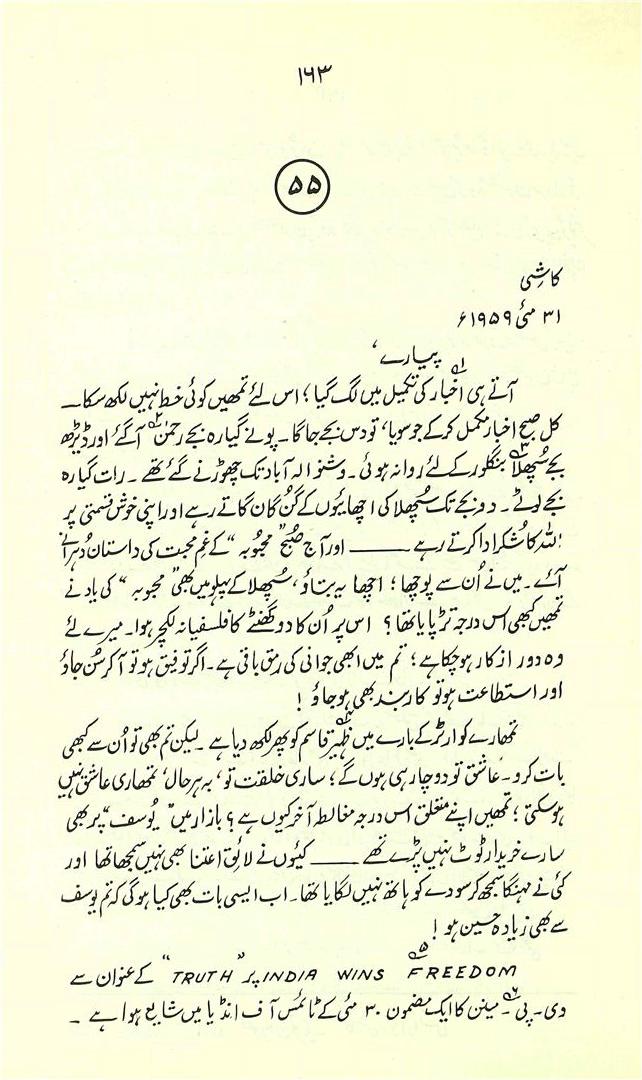 ۱۶۳
۵۵
کاشی
۳۱ مئی ۱۹۵۹ء
پیارے،
آتے ہی اخبار۱ کی تکمیل میں لگ گیا؛ اس لئے تمھیں کوئی خط نہیں لکھ سکا۔
کل صبح اخبار مکمل کر کے جو سویا، تو دس بجے جاگا۔ پونے گیارہ بجے رحمٰن۲ آگئے اور ڈیڑھ
بجے سُچھلا۳ بنگلور کے لئے روانہ ہوئی۔ وشنو الہ آباد تک چھوڑنے گئے تھے۔ رات گیارہ
بجے لوٹے۔ دو بجے تک سُچھلا کی اچھائیوں کے گُن گان گاتے رہے اور اپنی خوش قسمتی پر
اللہ کا شکر ادا کرتے رہے ــــــــ اور آج صُبح ”محبوبہ“ کے غمِ محبت کی داستان دُہرانے
آئے۔ میں نے اُن سے پوچھا؛ اچھا یہ بتاؤ، سُچھلا کے پہلو میں بھی ”محبوبہ“ کی یاد نے
تمھیں کبھی اس درجہ تڑپایا تھا؟ اس پر اُن کا دو گھنٹے کا فلسفیانہ لکچر ہوا۔ میرے لئے
وہ دور از کار ہوچکا ہے؛ تم میں ابھی جوانی کی رمق باقی ہے۔ اگر توفیق ہو تو آکر سُن جاؤ
اور استطاعت ہو تو کاربند بھی ہو جاؤ!
تمھارے کوارٹر کے بارے میں ظہیر۴ قاسم کو پھر لکھ دیا ہے۔ لیکن تم بھی تو اُن سے کبھی
بات کرو۔ عاشق تو دو چار ہی ہوں گے؛ ساری خلقت تو، بہ ہر حال، تمھاری عاشق نہیں
ہوسکتی؛ تمھیں اپنے متعلق اس درجہ مغالطہ آخر کیوں ہے؟ بازار میں ”یُوسف“ پر بھی
سارے خریدار ٹوٹ نہیں پڑے تھے ــــــــ کیوں نے لائقِ اعتنا بھی نہیں سمجھا تھا اور
کئی نے مہنگا سمجھ کر سودے کو ہاتھ نہیں لگایا تھا۔ اب ایسی بات بھی کیا ہوگی کہ تم یوسف
سے بھی زیادہ حسین ہو!
INDIA WINS FREEDOM۵ پر ”TRUTH“ کے عنوان سے
وی۔ پی۔ مینن۶ کا ایک مضمون ۳۰ مئی کے ٹائمس آف انڈیا میں شایع ہوا ہے۔